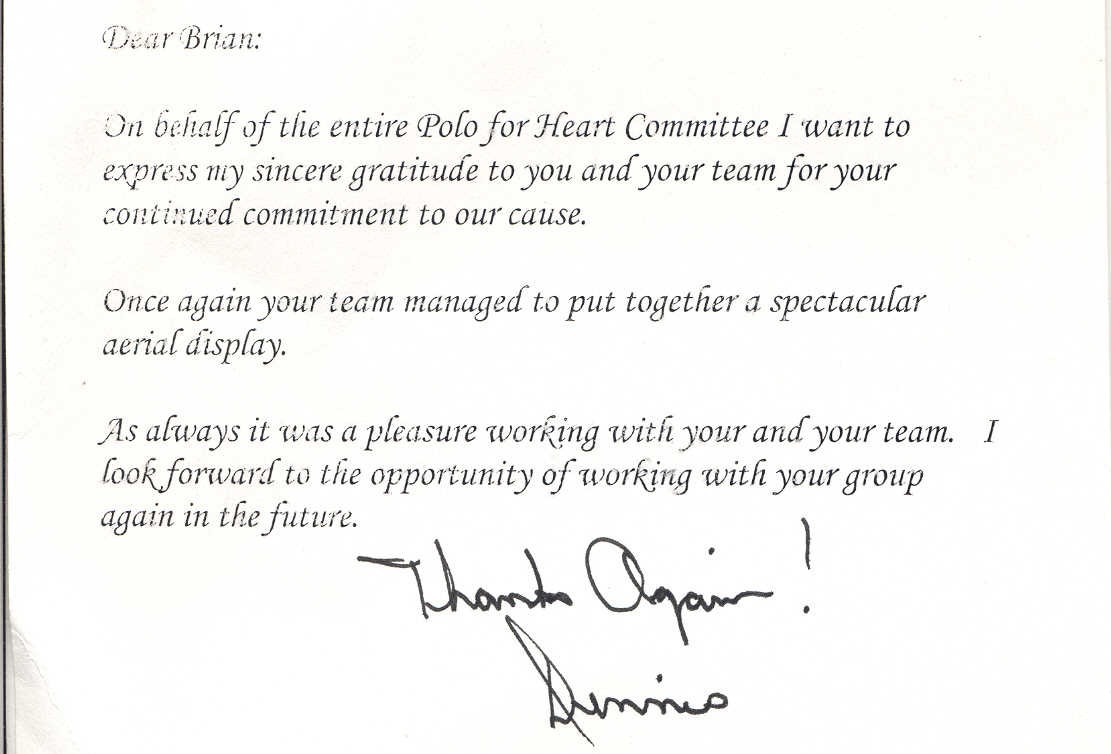 Dear Brian:
On behalf of the entire Polo for Heart Committee I want to
express my sincere gratitude to you and your team for your
continued commitment to our cause.
Once again your team managed to put together a spectacular
aerial display.
As always it was a pleasure working with your and your team. I
look forward to the opportunity of working with your group
again in the future.
Thanks Again!
Dennis